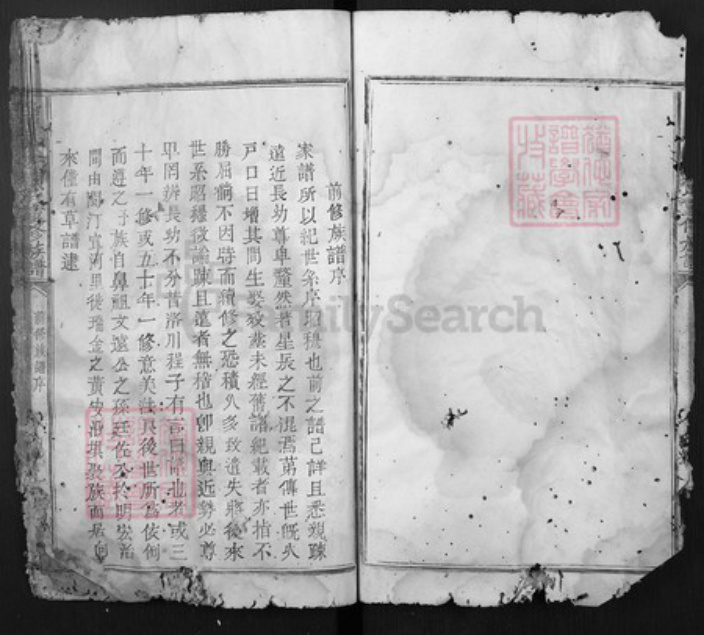 前修族譜序
家譜所以紀世系序昭穆也前之譜已詳且悉親疎
遠近長幼尊卑釐然若星辰之不混焉第傳世旣久
戸口日增其間生娶歿塟未經舊譜紀載者亦指不
勝屈倘不因時而續修之恐積久多致遺失將後來
世系昭穆微論疎且遠者無稽也卽親與近勢必尊
卑罔辨長幼不分昔洛川程子有言曰譜也者或三
十年一修或五十年一修意美法良後世所爲依倒
而遵之予族自鼻祖文遠公之孫廷佐公於明宏治
間由閩汀宜河里徙瑞金之黃安沿壩聚族而居
來僅有草譜逮
族譜
前修族譜序
FamilySearch